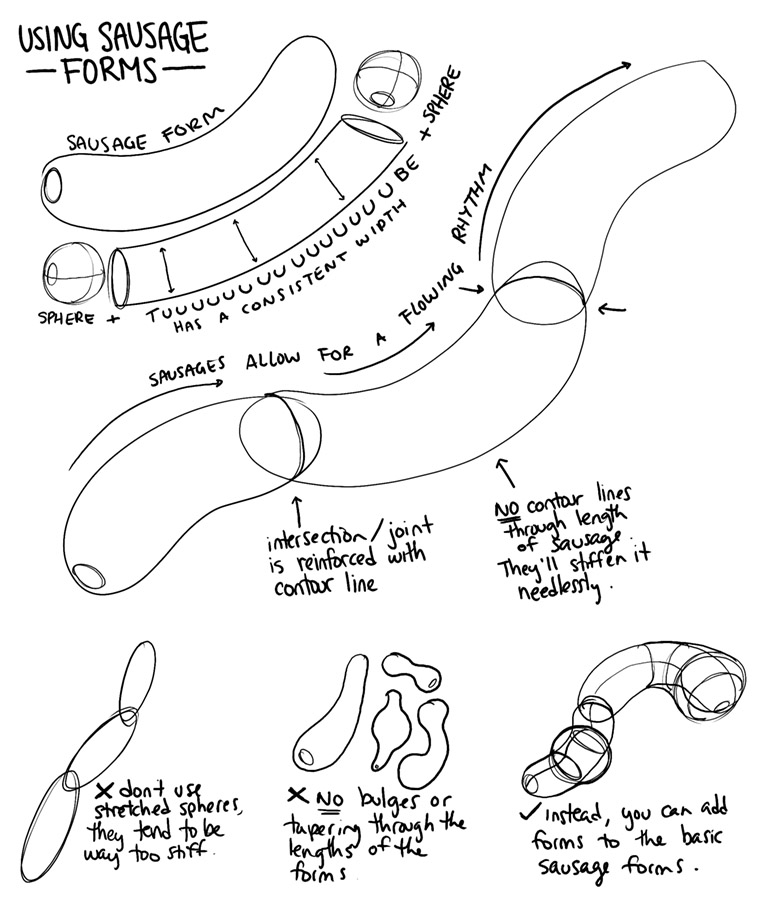 USING SAUSAGE
—FORMS—
SAUSAGE FORM
SPHERE + TUUUUUUUU UU UUUUUUU UBE + SPHERE
HAS A CONSISTENT WIDTH
SAUSAGES ALLOW FOR A FLOWING RHYTHM
intersection/joint
is reinforced with
contour line
NO contour lines
through length
of sausage.
They'll stiffen it
needlessly.
✗ don't use
stretched spheres,
they tend to be
way too stiff.
✗ NO bulges or
tapering through the
lengths of the
forms
✓ Instead, you can add
forms to the basic
sausage forms.